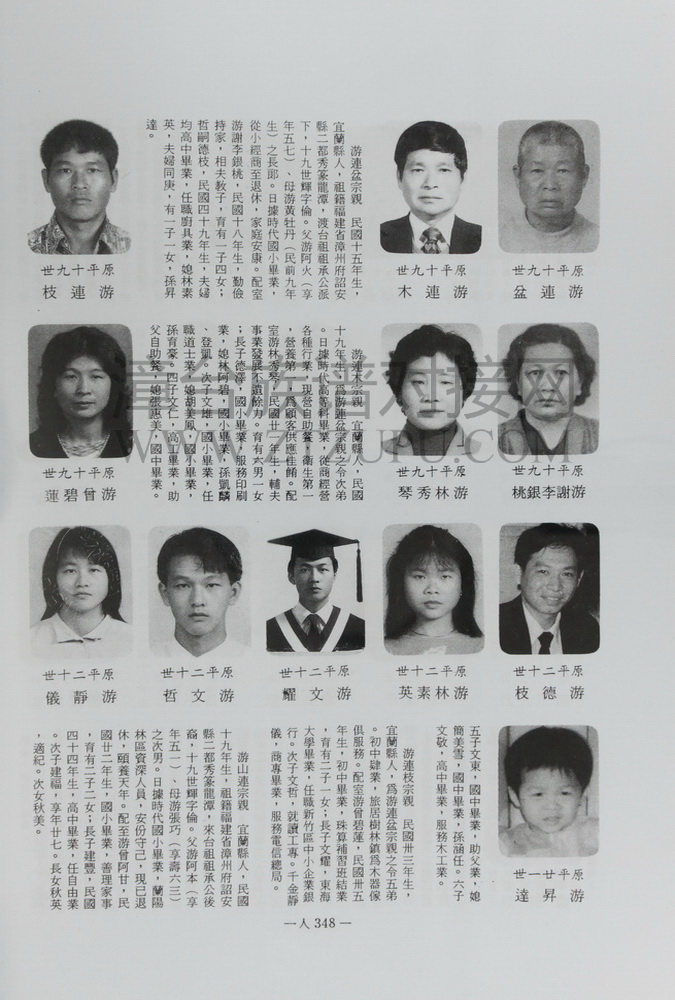 原平十九世
游連盆
原平十九世
游連木
游連盆宗親　民國十五年生，
宜蘭縣人，祖籍福建省漳州府詔安
縣二都秀篆龍潭，渡台祖祖承公派
下，十九世輝字倫。父游阿火（享
年五七）、母游黃牡丹（民前九年
生）之長郎。日據時代國小畢業，
從小經商至退休，家庭安康。配室
游謝李銀桃，民國十八年生，勤儉
持家，相夫教子，育有一子四女；
哲嗣德枝，民國四十九年生，夫婦
均高中畢業，任職廚具業，媳林素
英，夫婦同庚，有一子一女，孫昇
達。
原平十九世
游連枝
原平十九世
游謝李銀桃
原平十九世
游林秀琴
游連木宗親　宜蘭縣人，民國
十九年生，爲游連盆宗親之令次弟
。日據時代高等科畢業，從商經營
各種行業，現營自助餐，衛生第一
，營養第一，爲顧客供應佳餚。配
室游林秀琴，民國廿一年生，輔夫
事業發展不遺餘力。育有六男一女
；長子德澤，國小畢業，服務印刷
業，媳林阿碧，國小畢業，孫凱麟
、登凱。次子文雄，國小畢業，任
職道士業，媳胡美鳳，國小畢業，
孫育豪。四子文仁，高工畢業，助
父自助餐，媳張惠美，國中畢業。
原平十九世
游曾碧蓮
漳台族谱对接网
WWW.ZTZUPU.COM
原平二十世
游德枝
原平二十世
游林素英
原平二十世
游文耀
原平二十世
游文哲
原平二十世
游靜儀
原平廿一世
游昇達
五子文東，國中畢業，助父業，媳
簡美雪，國中畢業，孫涵任。六子
文敬，高中畢業，服務木工業。
游連枝宗親　民國卅三年生，
宜蘭縣人，爲游連盆宗親之令五弟
。初中肄業，旅居樹林鎮爲木器傢
俱服務。配室游曾碧蓮，民國卅五
年生，初中畢業，珠算補習班結業
，育有二子一女；長子文耀，東海
大學畢業，任職新竹區中小企業銀
行。次子文哲，就讀工專。千金靜
儀，商專畢業，服務電信總局。
游山連宗親　宜蘭縣人，民國
十九年生，祖籍福建省漳州府詔安
縣二都秀篆龍潭，來台祖祖承公後
裔，十九世輝字倫。父游阿本（享
年五一）、母游張巧（享壽六三）
之次男。日據時代國小畢業，蘭陽
林區資深人員，安份守己，現已退
休，頤養天年。配至游曾阿甘，民
國廿二年生，國小畢業，善理家事
，育有二子二女；長子建豐，民國
四十四年生，高中畢業，任自由業
。次子建福，享年廿七。長女秋英
，適紀。次女秋美。
— 人 348 —